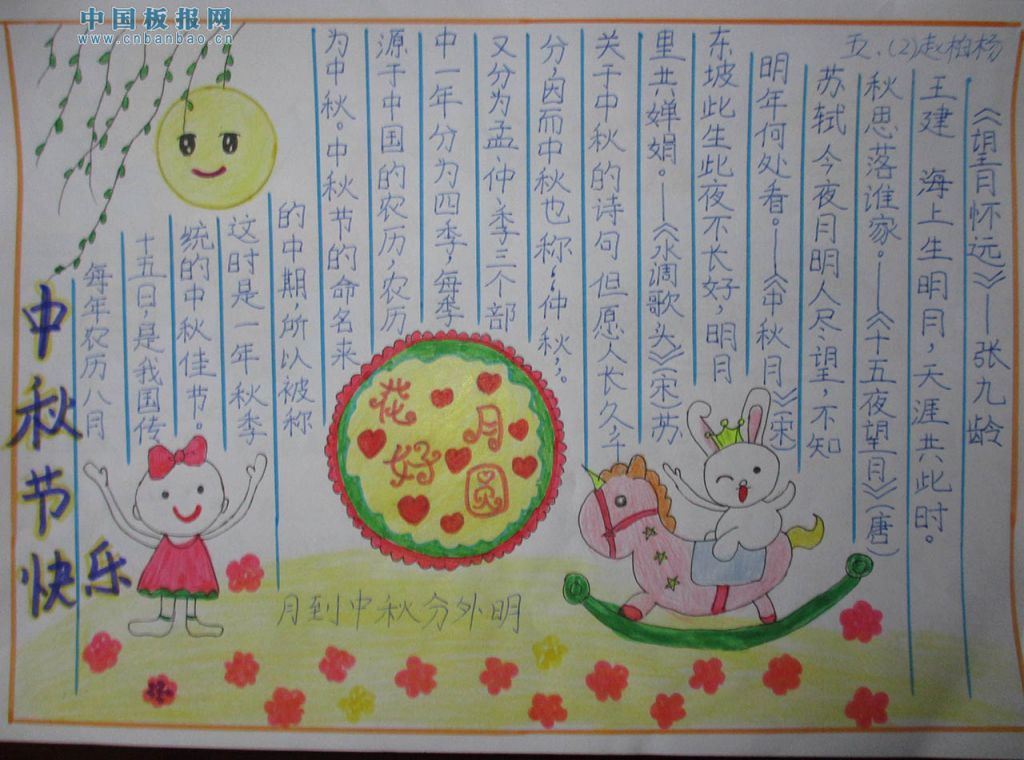 中国板报网
www.cnbanbao.cn
五.(2)赵柏杨
中秋节快乐
每年农历八月
十五日,是我国传
统的中秋佳节。
这时是一年秋季
的中期所以被称
为中秋。中秋节的命名来
源于中国的农历,农历
中一年分为四季,每季
又分为孟、仲、季三个部
分,因而中秋也称“仲秋”。
关于中秋的诗句 但愿人长久,千
里共婵娟。——《水调歌头》(宋)苏
东坡此生此夜不长好,明月
明年何处看。——《中秋月》(宋)
苏轼 今夜月明人尽望,不知
秋思落谁家。——《十五夜望月》(唐)
王建 海上生明月,天涯共此时。
《望月怀远》——张九龄
花好月圆
月到中秋分外明